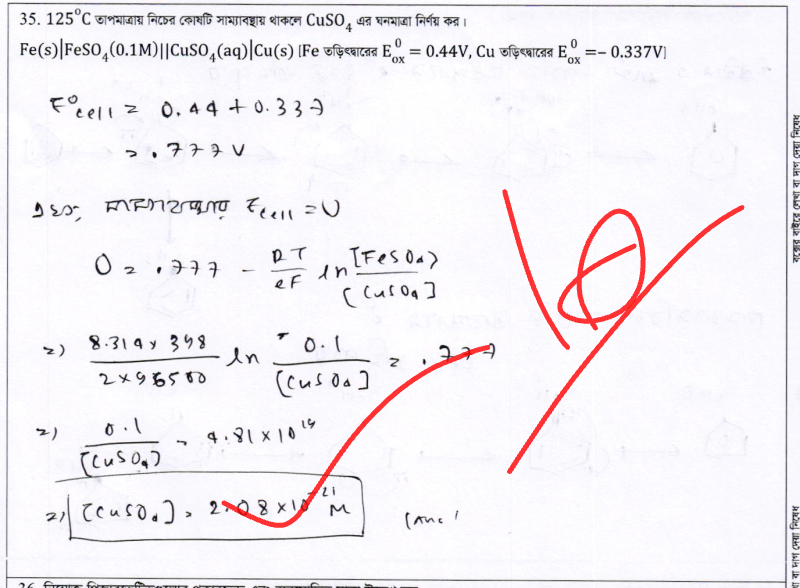 35. 125°C তাপমাত্রায় নিচের কোষটি সাম্যাবস্থায় থাকলে CuSO₄ এর ঘনমাত্রা নির্ণয় কর।
Fe(s)|FeSO₄(0.1M)||CuSO₄(aq)|Cu(s) [Fe তড়িৎদ্বারের E⁰ₒₓ = 0.44V, Cu তড়িৎদ্বারের E⁰ₒₓ =− 0.337V]
E⁰cell = 0.44 + 0.337
= .777 V
এখন, সাম্যাবস্থায় Ecell = 0
0 = .777 - RT/eF ln [FeSO₄]/[CuSO₄]
⇒) 8.314 × 398 / 2 × 96500 ln 0.1/[CuSO₄] = .777
⇒) 0.1/[CuSO₄] = 4.81 × 10¹⁹
⇒) [CuSO₄] = 2.08 × 10⁻²¹ M (Ans)
বক্সের বাইরে লেখা বা দাগ দেয়া নিষেধ